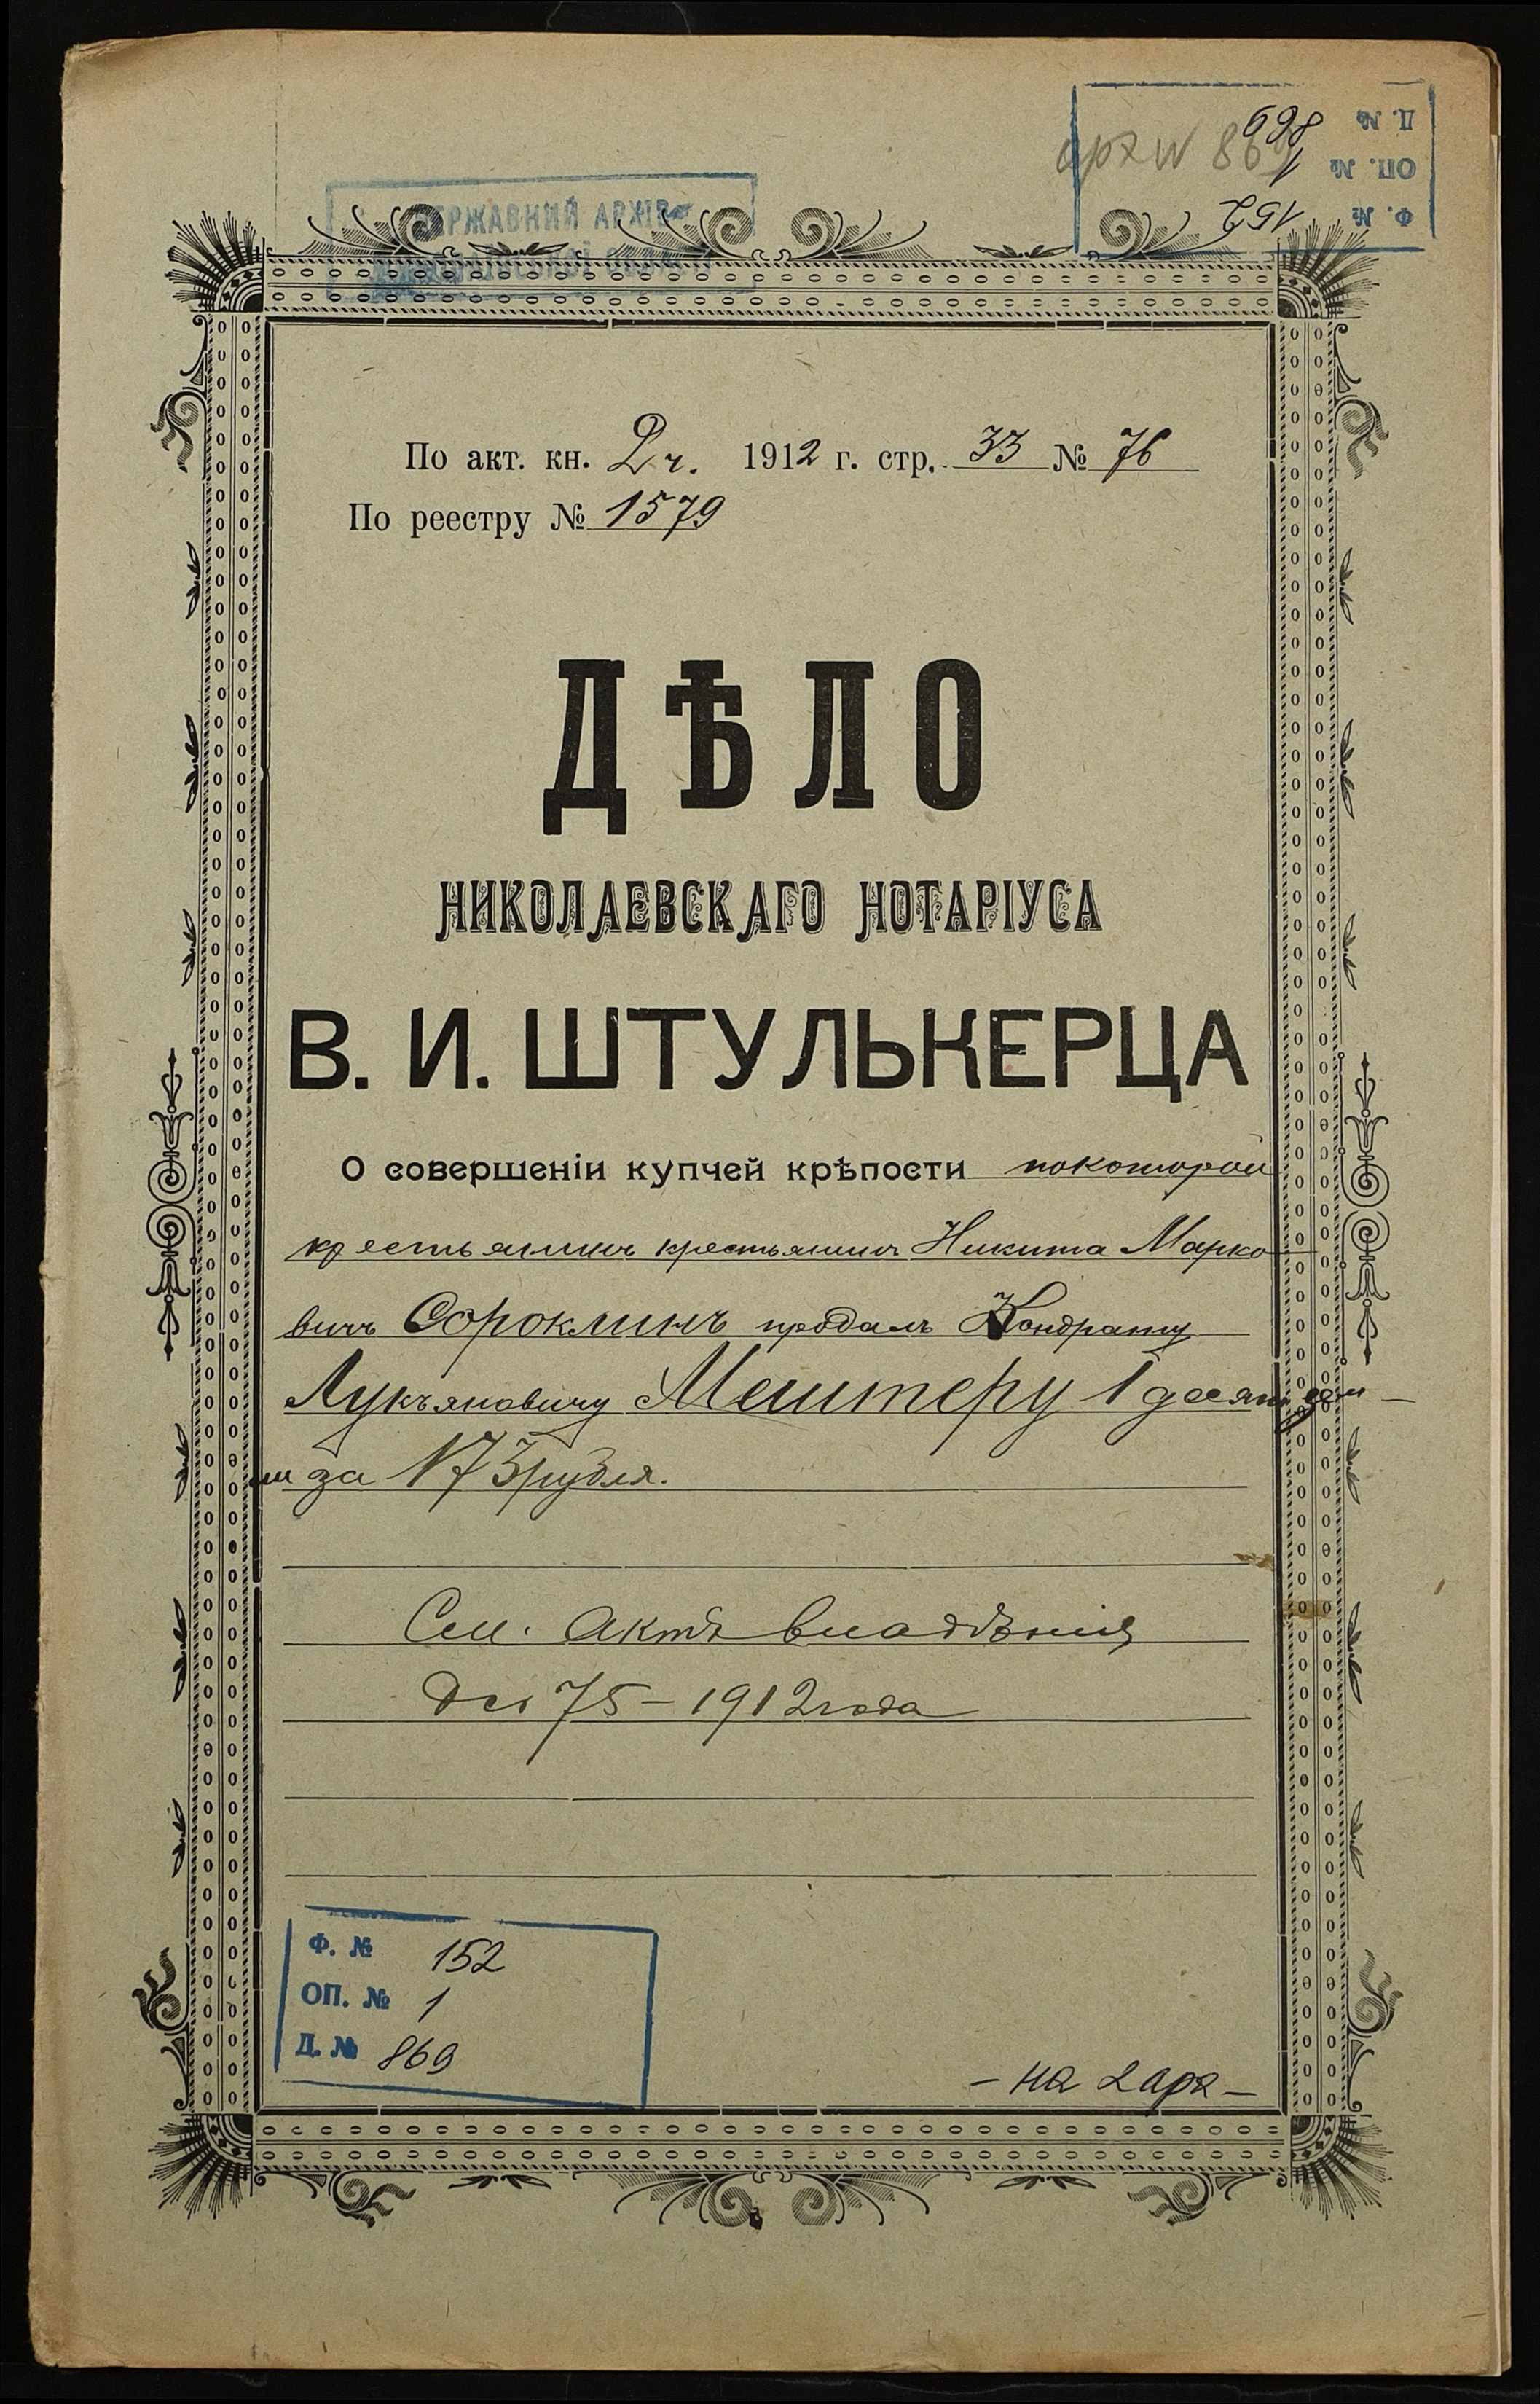 Д. № 869
ОП. № 1
Ф. № 152
арх № 869
ДЕРЖАВНИЙ АРХІВ
По акт. кн. 2 ч. 1912 г. стр. 33 № 76
По реестру № 1579
ДѢЛО
НИКОЛАЕВСКАГО НОТАРІУСА
В. И. ШТУЛЬКЕРЦА
О совершеніи купчей крѣпости покоторой
крестьянинъ крестьянинъ Никита Марко
вичъ Сороклинъ продалъ Кондрату
Лукъяновичу Мештеру 1 десят земли
за 173 рубля.
См. Актъ владѣнія
75 - 1912 года
Ф. № 152
ОП. № 1
Д. № 869
- на 2 арх -